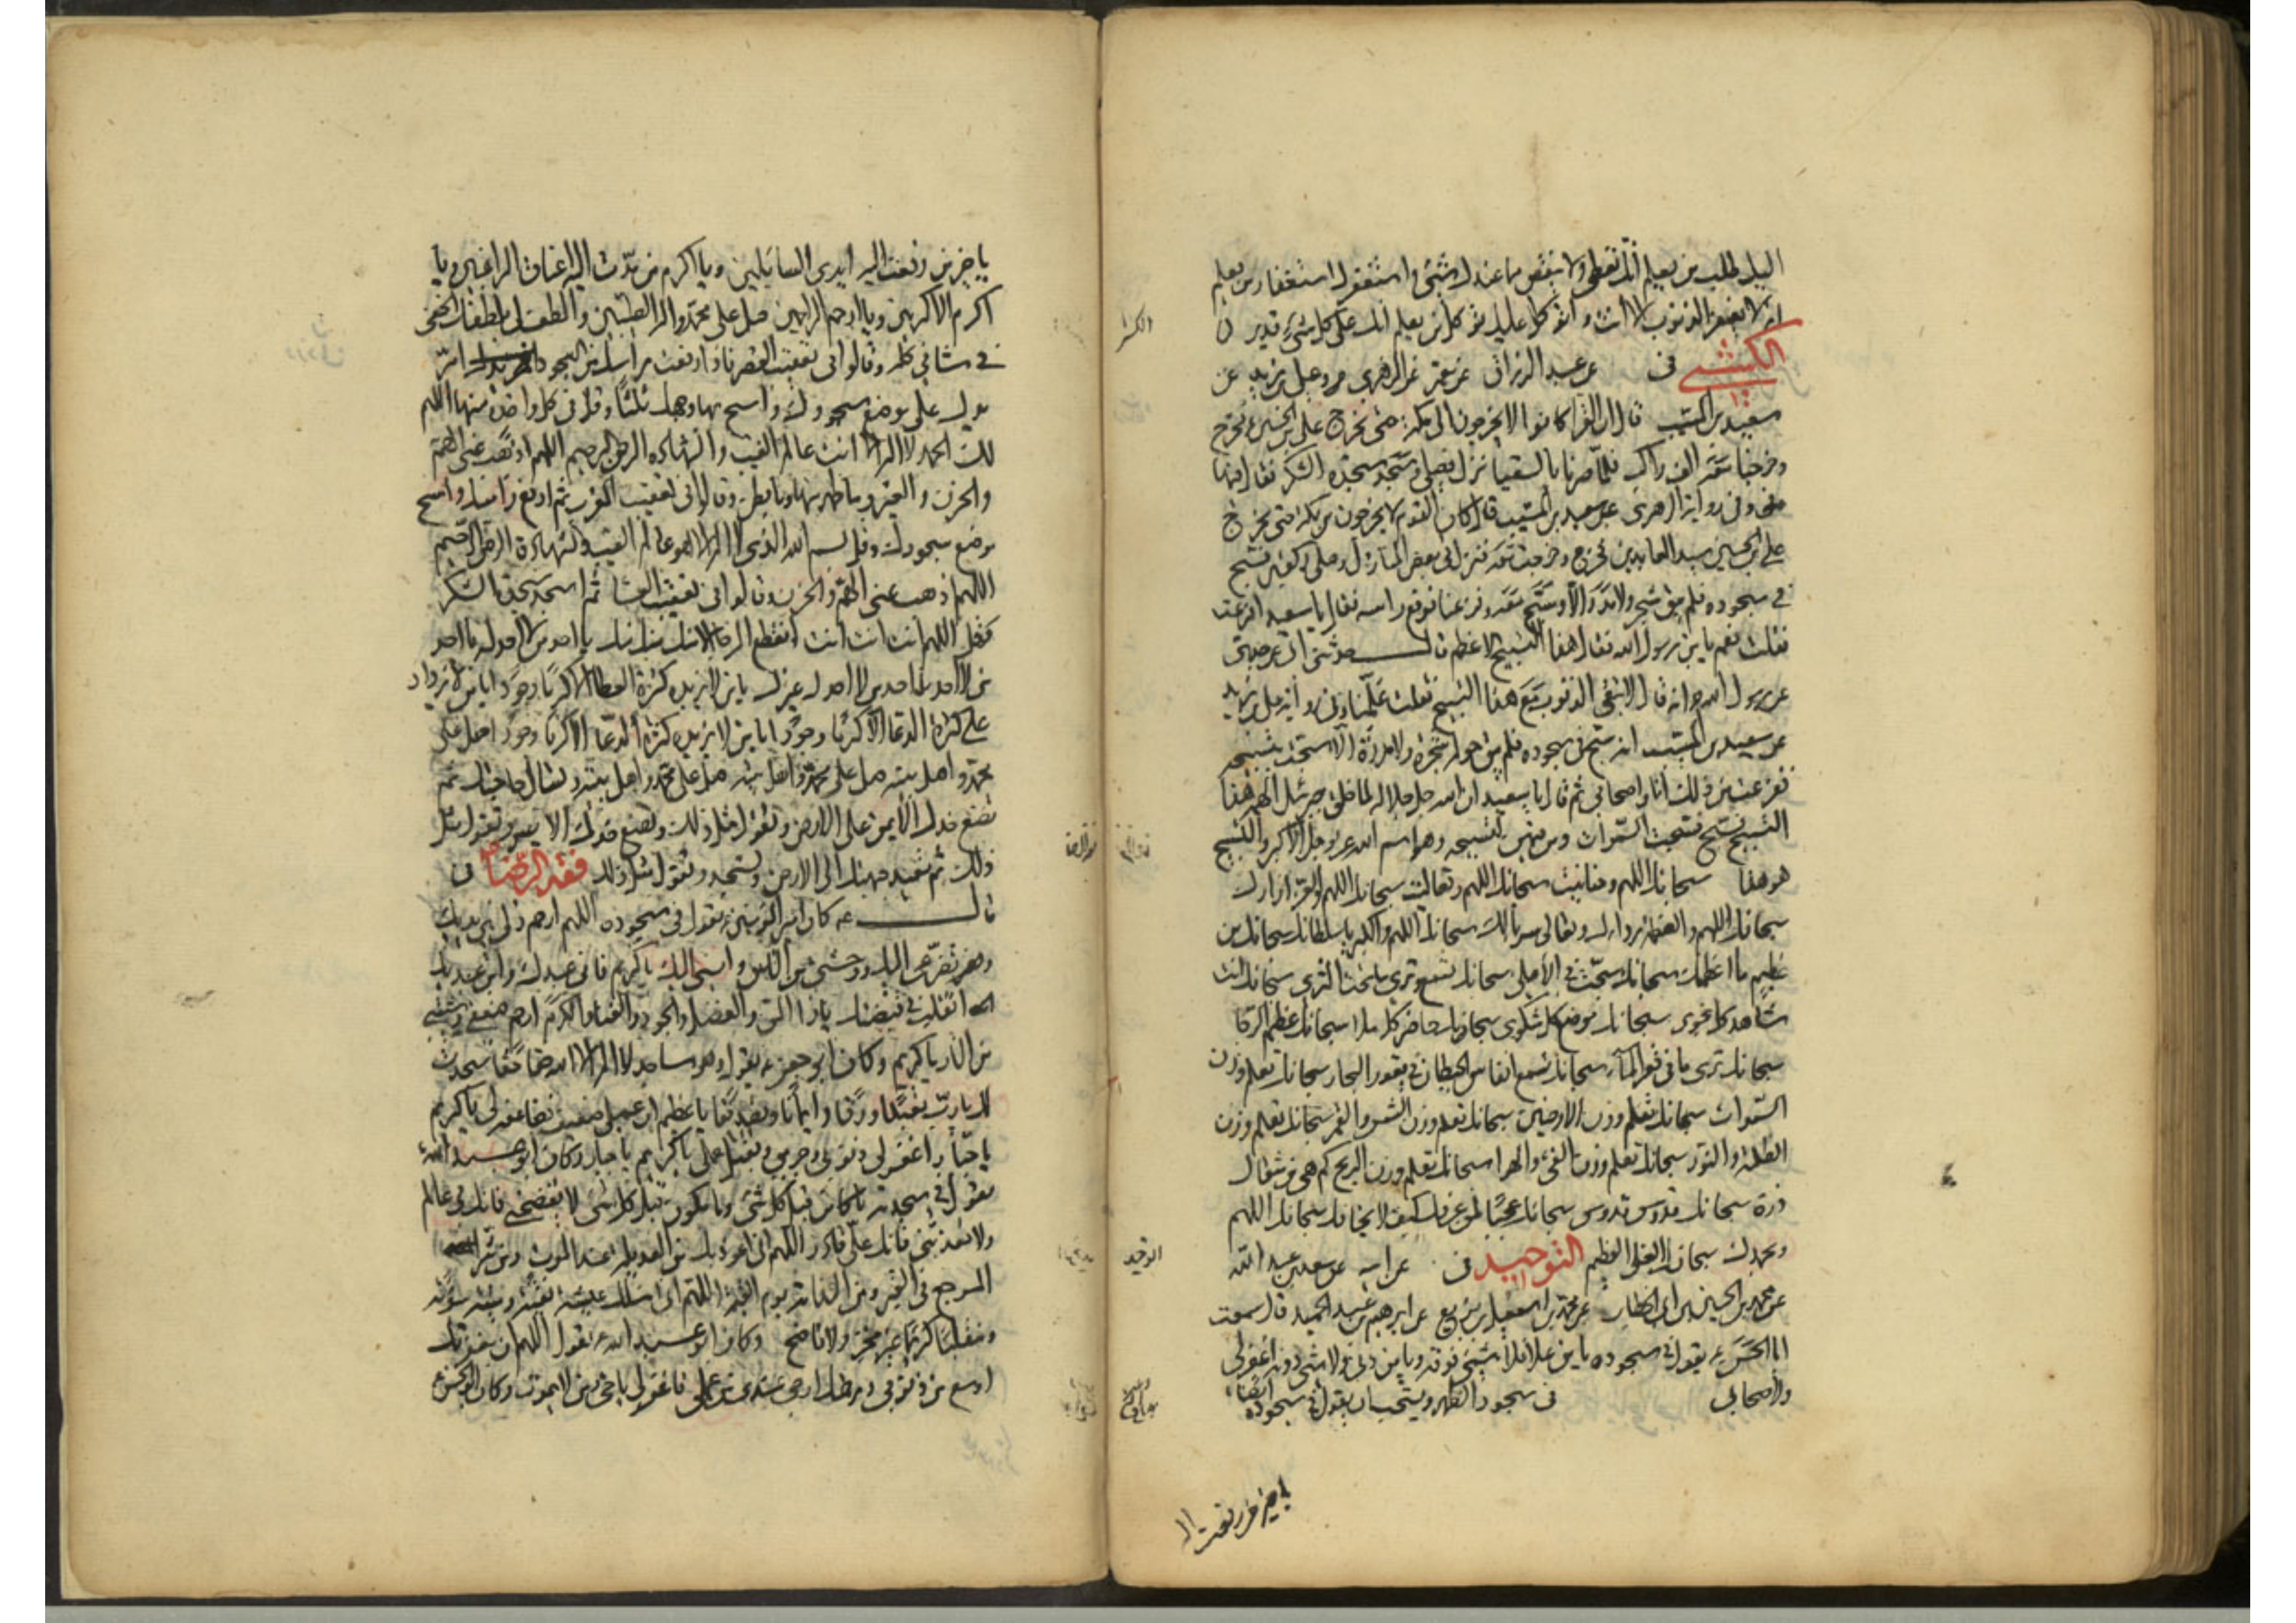 اليك طلب من يعلم انك تعطي ولا ينقص مما عندك شيء واستغفرك استغفار من يعلم
انه لا يغفر الذنوب الا انت واتوكل عليك توكل من يعلم انك على كل شيء قدير
الكشي في عن عبد الرزاق عن معمر عن الزهري وعلي بن زيد عن
سعيد بن المسيب قال ان القراء كانوا لا يخرجون الى مكة حتى يخرج علي بن الحسين فخرج
وخرجنا معه الف راكب فلما صرنا بالسقيا نزل فصلى وسجد سجدة الشكر فقال فيها
وفي رواية الزهري عن سعيد بن المسيب قال كان القوم لا يخرجون من مكة حتى يخرج
علي بن الحسين سيد العابدين فخرج وخرجت معه فنزل في بعض المنازل وصلى ركعتين فسبح
في سجوده فلم يبق شجر ولا مدر الا وسبح معه ففزعنا فرفع راسه فقال يا سعيد افزعت
فقلت نعم يا بن رسول الله فقال هذا التسبيح الاعظم حدثني ابي عن جدي
عن رسول الله انه قال لا تبقى الذنوب مع هذا التسبيح فقلت علمنا وفي رواية علي بن زيد
عن سعيد بن المسيب انه سبح في سجوده فلم يبق حوله شجرة ولا مدرة الا سبحت بتسبيحه
ففزعت من ذلك انا واصحابي ثم قال يا سعيد ان الله جل جلاله لما خلق جبرئيل الهمه هذا
التسبيح فسبح فسبحت السموات ومن فيهن لتسبيحه وهو اسم الله عز وجل الاكبر والتسبيح
هو هذا سبحانك اللهم وحنانيك سبحانك اللهم وتعاليت سبحانك اللهم والعز ازارك
سبحانك اللهم والعظمة رداؤك وتعالى سربالك سبحانك اللهم والكبرياء سلطانك سبحانك من
عظيم ما اعظمك سبحانك سبحت في الاعلى سبحانك تسمع وترى ما تحت الثرى سبحانك انت
شاهد كل نجوى سبحانك موضع كل شكوى سبحانك حاضر كل ملا سبحانك عظيم الرجا
سبحانك ترى ما في قعر الماء سبحانك تسمع انفاس الحيتان في قعور البحار سبحانك تعلم وزن
السموات سبحانك تعلم وزن الارضين سبحانك تعلم وزن الشمس والقمر سبحانك تعلم وزن
الظلمة والنور سبحانك تعلم وزن الفيء والهوا سبحانك تعلم وزن الريح كم هي من مثقال
ذرة سبحانك قدوس قدوس سبحانك عجبا لمن عرفك كيف لا يخافك سبحانك اللهم
وبحمدك سبحان العلي العظيم التوحيد في عن ابيه عن سعد بن عبد الله
عن محمد بن الحسين بن ابي الخطاب عن محمد بن اسمعيل بن بزيع عن ابرهيم بن عبد الحميد قال سمعت
ابا الحسن يقول في سجوده يا من علا فلا شيء فوقه ويا من دنى فلا شيء دونه اغفر لي
ولاصحابي في سجود الظهر ويستحب ان يقول في سجوده ايضا
يا خير من رفعت ال
يا خير من رفعت اليه ايدي السائلين ويا اكرم من مدت اليه اعناق الراغبين ويا
اكرم الاكرمين ويا ارحم الراحمين صل على محمد واله الطيبين والطف لي بلطفك الخفي
في شاني كله وقالوا في تعقيب العصر فاذا رفعت راسك من السجود امر
يدك على موضع سجودك وامسح بها وجهك ثلثا وقل في كل واحدة منها اللهم
لك الحمد لا اله الا انت عالم الغيب والشهاده الرحمن الرحيم اللهم اذهب عني الهم
والحزن والغير ما ظهر منها وما بطن وقالوا في تعقيب المغرب ثم ارفع راسك وامسح
موضع سجودك وقل بسم الله الذي لا اله الا هو عالم الغيب والشهادة الرحمن الرحيم
اللهم اذهب عني الهم والحزن وقالوا في تعقيب العشا ثم اسجد سجدة الشكر
فقل اللهم انت انت انت انقطع الرجا الا منك منك منك يا احد من لا احد له يا احد
من لا احد له يا احد من لا احد له غيرك يا من لا يزيده كثرة العطا الا كرما وجودا يا من لا يزداد
على كثرة الدعا الا كرما وجودا يا من لا يزيده كثرة الدعا الا كرما وجودا صل على
محمد واهل بيته صل على محمد واهل بيته صل على محمد واهل بيته وتسال حاجتك ثم
تضع خدك الايمن على الارض وتقول مثل ذلك وتضع خدك الايسر وتقول مثل
ذلك ثم تعيد جبهتك الى الارض وتسجد وتقول مثل ذلك فقه الرضا في
قال كان امير المؤمنين يقول في سجوده اللهم ارحم ذلي بين يديك
وتضرعي اليك ووحشتي من الناس وانسي اليك يا كريم فاني عبدك وابن عبديك
اتقلب في قبضتك يا ذا المن والفضل والجود والغنا والكرم ارحم ضعفي وشيبتي
من النار يا كريم وكان ابو جعفر يقول وهو ساجد لا اله الا الله حقا حقا سجدت
لك يا رب تعبدا ورقا وايمانا وتصديقا يا عظيم ان عملي ضعيف فضاعفه لي يا كريم
يا جبار اغفر لي ذنوبي وجرمي وتقبل عملي يا كريم يا جبار وكان ابو عبد الله
يقول في سجدته يا كائن قبل كل شيء ويا مكون كل شيء لا تفضحني فانك بي عالم
ولا تعذبني فانك علي قادر اللهم اني اعوذ بك من العديلة عند الموت ومن شر
المرجع في القبر ومن الندامة يوم القيمة اللهم اني اسئلك عيشة نقية وميتة سوية
ومنقلبا كريما غير مخز ولا فاضح وكان ابو عبد الله يقول اللهم ان مغفرتك
اوسع من ذنوبي ورحمتك ارجى عندي من عملي فاغفر لي يا حي من لا يموت وكان ابو الحسن